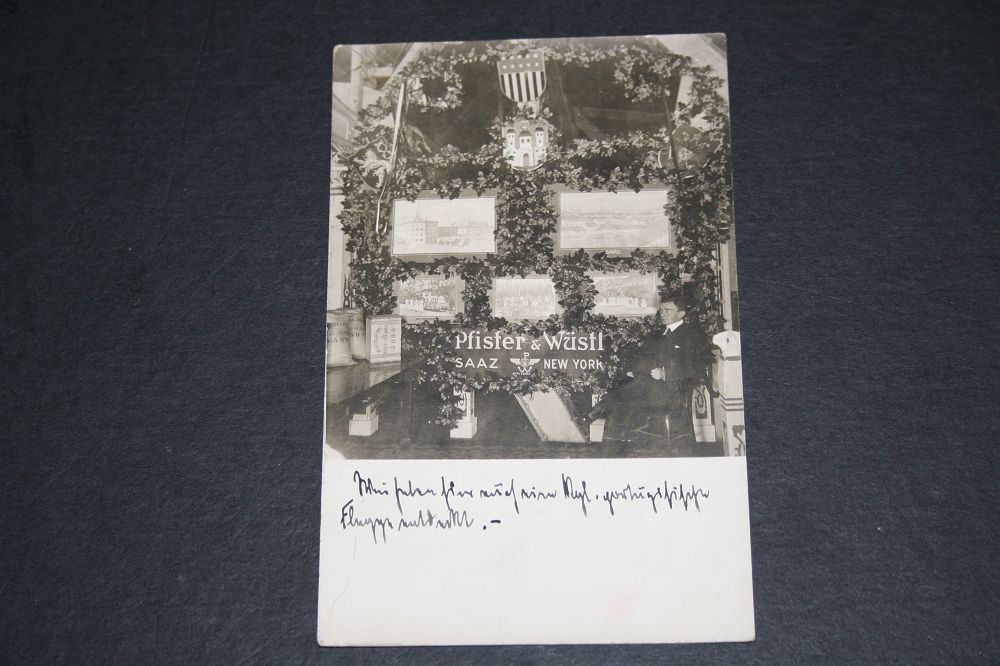 Pfister & Wüstl
SAAZ NEW YORK
Wir haben hier auch eine Kgl. portugisische
Flagge entdeckt.–